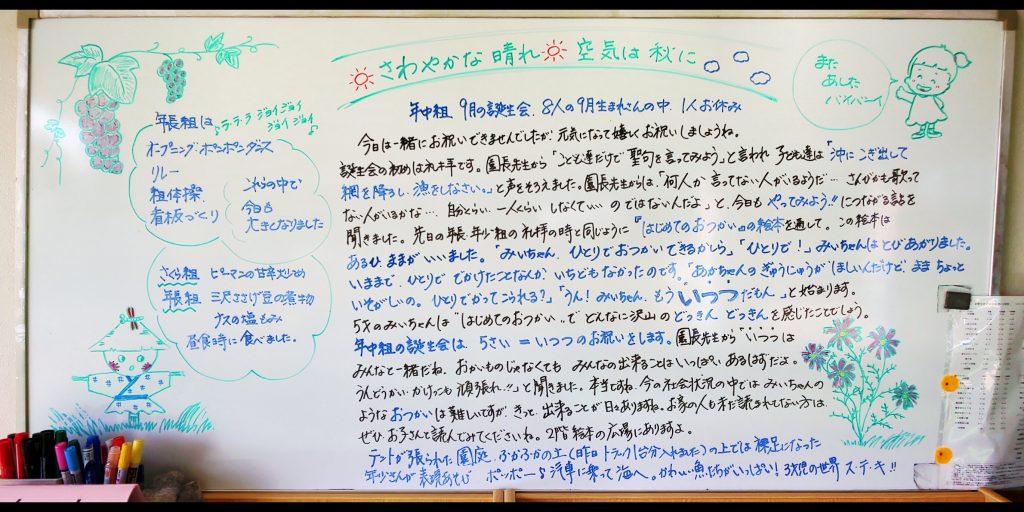 さわやかな晴れ 空気は秋に
また
あした
バイバーイ
年長組は ラ・ラ・ラ ジョイジョイ
ジョイジョイ♪
オープニング・ポンポンダンス
リレー
組体操
看板づくり
これらの中で
今日も
大きくなりました
さくら組 ピーマンの甘辛炒め
年長組 三尺ささげ豆の煮物
ナスの塩もみ
昼食時に食べました。
年中組 9月の誕生会、8人の9月生まれさんの中、1人お休み
今日は一緒にお祝いできませんでしたが、元気になって嬉しくお祝いしましょうね。
誕生会の初めは礼拝です。園長先生から「こども達だけで聖句を言ってみよう」と言われ 子ども達は「沖にこぎ出して
網を降ろし、漁をしなさい。」と声をそろえました。園長先生からは、「何人か言ってない人がいるようだ… さんびかも歌って
ない人がいるかな…、自分くらい、一人くらいしなくていい のではないんだよ」と、今日も やってみよう!! につながる話を
聞きました。先日の年長・年少組の礼拝の時と同じように『はじめてのおつかい』の絵本を通して。この絵本は
あるひ、ままがいいました。「みいちゃん、ひとりでおつかいできるかしら」「ひとりで!」みいちゃんはとびあがりました。
いままで、ひとりで でかけたことなんか、いちどもなかったのです。"あかちゃんのぎゅうにゅうがほしいんだけど、まま ちょっと
いそがしいの。ひとりでかってこられる?」「うん!みいちゃん、もういつつだもん」と始まります。
5才のみいちゃんは"はじめてのおつかい"で どんなに沢山のどっきん どっきんを感じたことでしょう。
年中組の誕生会は、5さい=いつつのお祝いをします。園長先生から「いつつは
みんなと一緒だね。おかいものじゃなくても みんなの出来ることはいっぱいあるはずだよ。
うんどうかい・かけっこも頑張れ!!」と聞きました。本当ですね。今の社会状況の中では みいちゃんの
ような おつかいは難しいですが、きっと出来ることが日々ありますね。お家の人も未だ読まれてない方は、
ぜひ、お子さんと読んでみてくださいね。2階 絵本の広場にありますよ。
テントが張られた園庭、ふかふかの土(昨日トラック1台分入れました)の上では裸足になった
年少さんが表現あそび ポッポー♪汽車に乗って海へ。かわいい魚たちがいっぱい! 3歳児の世界 ス・テ・キ!!